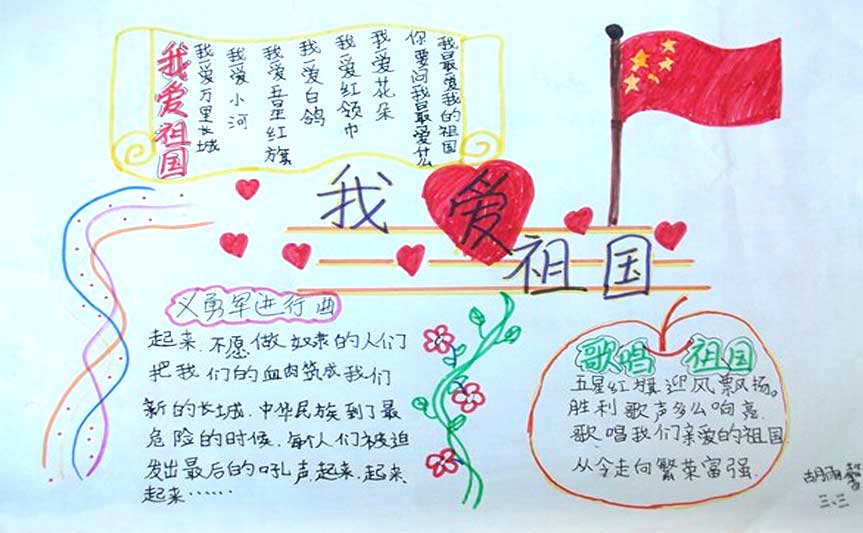 我爱祖国
我爱万里长城
我爱小河
我爱五星红旗
我爱白鸽
我爱红领巾
我爱花朵
你要问我最爱什么
我最爱我的祖国
我爱
祖国
义勇军进行曲
起来、不愿做奴隶的人们
把我们的血肉筑成我们
新的长城、中华民族到了最
危险的时候、每个人们被迫
发出最后的吼声、起来、起来、
起来……
歌唱 祖国
五星红旗迎风飘扬。
胜利歌声多么响亮.
歌唱我们亲爱的祖国.
从今走向繁荣富强.
胡雨馨
三、三